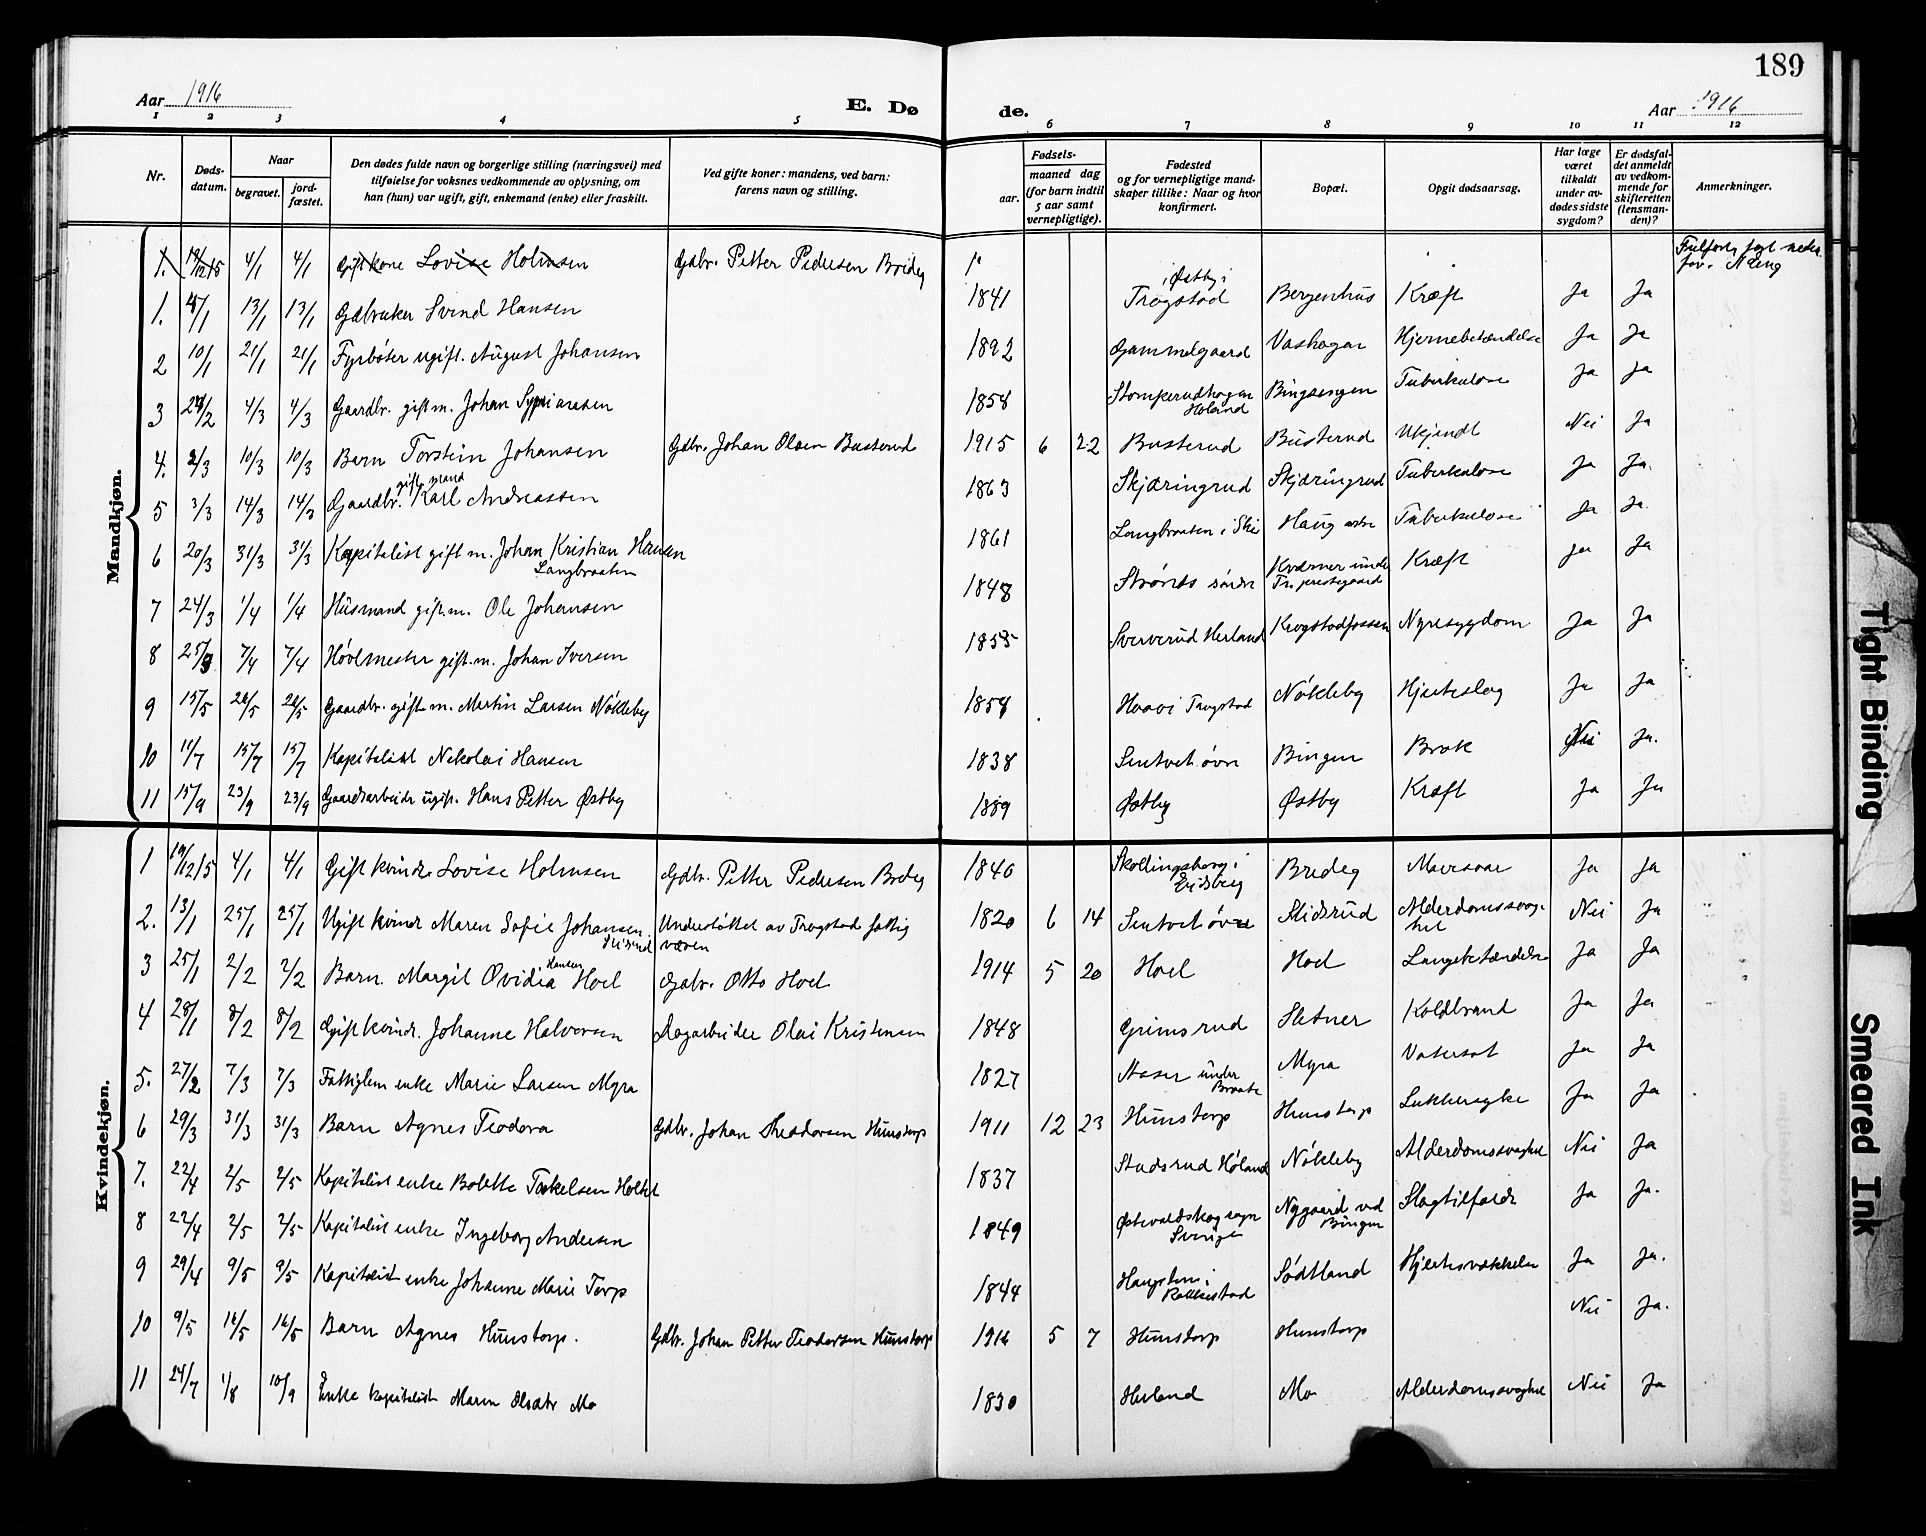 189
Aar 1916
E. Dø de.
Aar 1916
1 2 3 4 5 6 7 8 9 10 11 12
Nr.
Døds-
datum.
Naar
begravet.
jord-
fæstet.
Den dødes fulde navn og borgerlige stilling (næringsvei) med
tilføielse for voksnes vedkommende av oplysning, om
han (hun) var ugift, gift, enkemand (enke) eller fraskilt.
Ved gifte koner: mandens, ved barn:
farens navn og stilling.
Fødsels-
aar.
maaned dag
(for barn indtil
5 aar samt
vernepligtige).
Fødested
og for vernepligtige mand-
skaper tillike: Naar og hvor
konfirmert.
Bopæl.
Opgit dødsaarsag.
Har læge
været
tilkaldt
under av-
dødes sidste
sygdom?
Er dødsfal-
det anmeldt
av vedkom-
mende for
skifteretten
(lensman-
den)?
Anmerkninger.
Mandkjøn.
1. 19/12 15 4/1 4/1 Gift kone Lovise Holmsen Gdbr. Petter Pedersen Bredeg
1. 4/1 13/1 13/1 Gdbruker Svend Hansen 1841 Østby i Trøgstad Bergenhus Kræft Ja Ja
2 10/1 21/1 21/1 Fyrbøter ugift. August Johansen 1892 Gammelgaard Vaskogar Hjernebetændelse Ja Ja
3 24/2 4/3 4/3 Gaardbr. gift m. Johan 1858 Høland Bingsengen Tuberkulose Ja Ja
4. 2/3 10/3 10/3 Barn Torstein Johansen Gdbr. Johan Olsen Busterud 1915 6 22 Busterud Busterud Ukjendt Nei Ja
5 3/3 14/3 14/3 Gaardbr. gift mand Karl Andreassen 1863 Skjæringrud Skjæringrud Tuberkulose Ja Ja.
6 20/3 31/3 31/3 Kapitalist gift m. Johan Kristian Hansen Langbraaten 1861 Langbraaten i Ski Haug Tuberkulose Ja Ja.
7 24/3 1/4 1/4 Husmand gift. m. Ole Johansen 1848 Strønes søndre Kværner under Tr. prestegaard Kræft Ja Ja
8 25/3 7/4 7/4 Høvlmester gift. m. Johan Iversen 1855 Sververud Herland Krogstadfossen Nyresygdom Ja Ja
9 15/5 26/5 26/5 Gaardbr. gift m. Martin Larsen Nøkleby 1858 Trøgstad Nøkleby Hjerteslag Ja Ja
10 11/7 15/7 15/7 Kapitalist Nikolai Hansen 1838 Sentvet øvre Bingen Brok Nei Ja.
11 15/9 23/9 23/9 Gaardsarbeider ugift. Hans Petter Østby 1889 Østby Østby Kræft Ja Ja
Kvindekjøn.
1 19/12 15 4/1 4/1 Gift kvinde Lovise Holmsen Gdbr. Petter Pedersen Bredeg 1840 Skollingsborg i Eidsberg Bredeg Mavesaar Ja Ja
2. 13/1 25/1 25/1 Ugift kvinde Maren Sofie Johansen Slidsrud Understøttet av Trøgstad fattigvæsen 1820 6 14 Sentvet øvre Slidsrud Alderdomssvaghet Nei Ja
3 25/1 2/2 2/2 Barn. Margit Ovidia Hansen Hoel Gdbr. Otto Hoel 1914 5 20 Hoel Hoel Lungebetændelse Ja Ja
4 28/1 8/2 8/2 Gift kvinde. Johanne Halvorsen Dagarbeider Olai Kristensen 1848 Grimsrud Sletner Koldbrand Ja Ja
5. 27/2 7/3 7/3 Fattiglem enke Marie Larsen Myra 1827 under Braate Myra Vatersot Ja Ja
6 29/3 31/3 31/3 Barn Agnes Teodora Gdbr. Johan Theodorsen Hunstorp 1911 12 23 Hunstorp Hunstorp Sukkersyke Ja Ja
7. 22/4 2/5 2/5 Kapitalist enke Bolette Torkelsen 1837 Stadsrud Høland Nøkleby Alderdomssvaghet Nei Ja
8 22/4 2/5 2/5 Kapitalist enke Ingeborg Andersen 1849 Østervaldskog sogn Sverige Nygaard ved Bingen Slagtilfælde Ja Ja.
9 29/4 9/5 9/5 Kapitalist enke Johanne Marie Torp 1844 Haugsten i Rakkestad Sødtland Hjertesvækkelse Ja Ja.
10 9/5 16/5 16/5 Barn Agnes Hunstorp. Gdbr. Johan Petter Teodorsen Hunstorp 1916 5 7 Hunstorp Hunstorp Nei Ja.
11 24/7 1/8 10/9 Enke kapitalist Maren Mo 1830 Herland Mo Alderdomssvaghet Nei Ja
Tight Binding
Smeared Ink